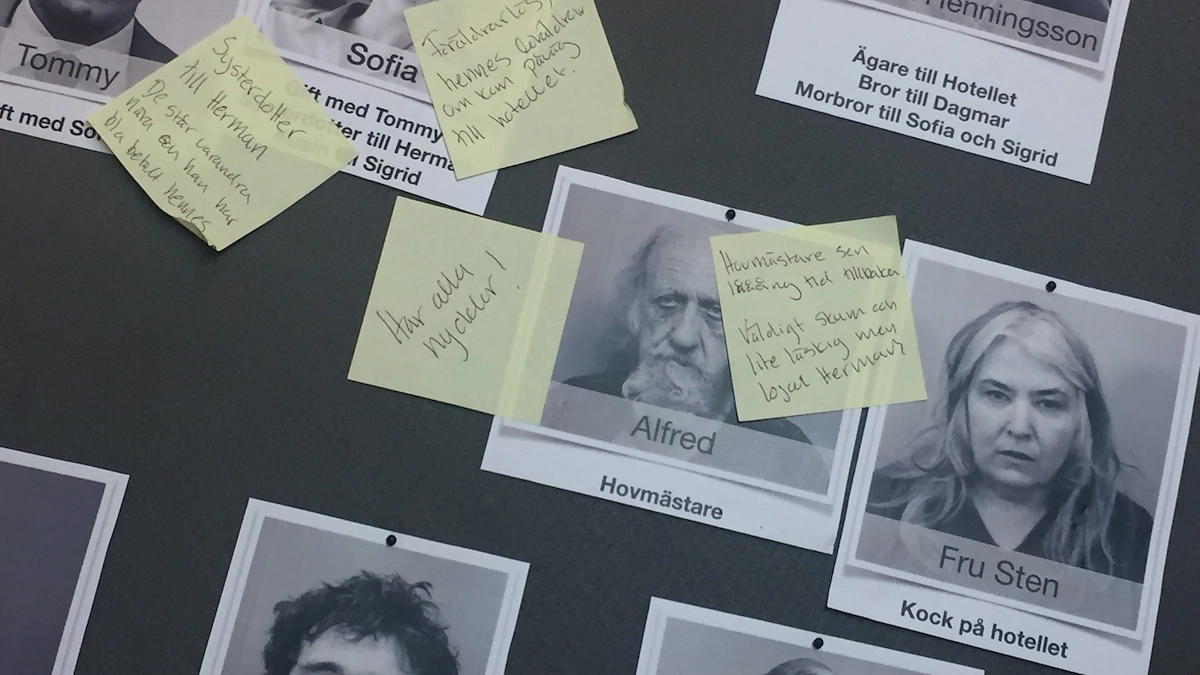 Tommy
Systerdotter
till Herman
De står varandra
nära och han har
bla betalt hennes
Sofia
Föräldrarlös,
hennes föräldrar
om kom påväg
till hotellet?
ft med Tommy
tter till Herma
Sigrid
Henningsson
Ägare till Hotellet
Bror till Dagmar
Morbror till Sofia och Sigrid
Har alla
nycklar!
Hovmästare sen
lååång tid tillbaka
Väldigt skum och
lite läskig men
lojal Herman
Alfred
Hovmästare
Fru Sten
Kock på hotellet